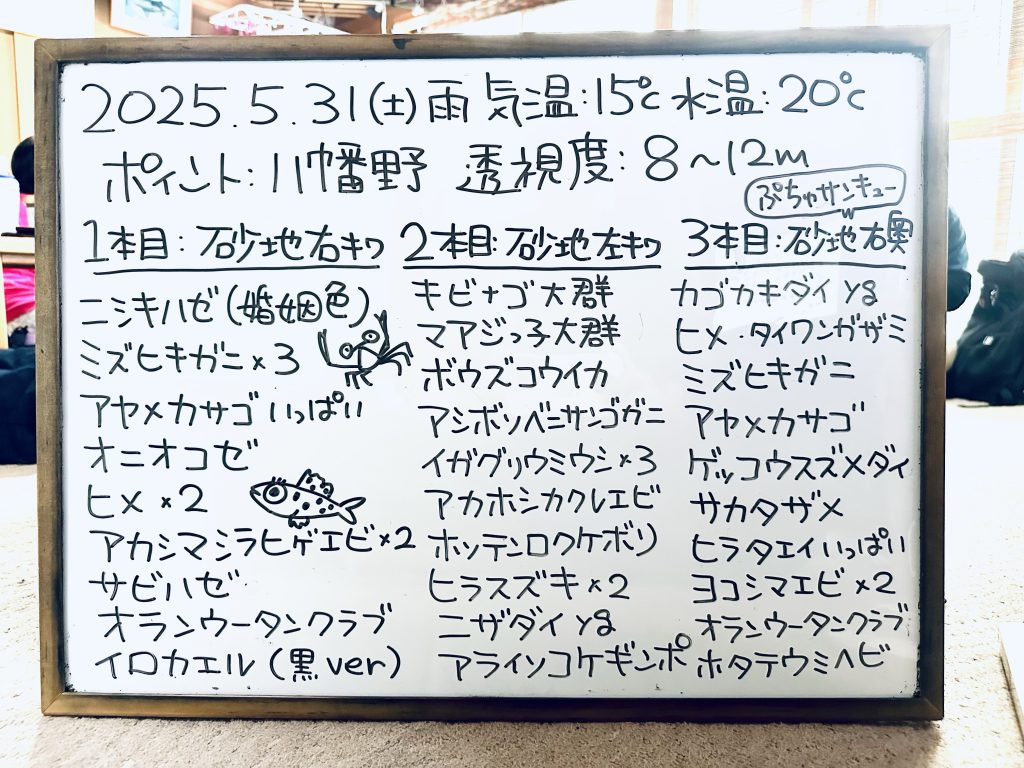 2025.5.31(土)雨 気温:15℃ 水温:20℃
ポイント:八幡野 透視度:8〜12m
ぷちゃサンキュー
1本目:砂地右キワ
ニシキハゼ(婚姻色)
ミズヒキガニ×3
アヤメカサゴいっぱい
オニオコゼ
ヒメ×2
アカシマシラヒゲエビ×2
サビハゼ
オランウータンクラブ
イロカエル(黒ver)
2本目:砂地左キワ
キビナゴ大群
マアジっ子大群
ボウズコウイカ
アシボソベニサンゴガニ
イガグリウミウシ×3
アカホシカクレエビ
ホソテンロクケボリ
ヒラスズキ×2
ニザダイyg
アライソコケギンポ
3本目:砂地右奥
カゴカキダイyg
ヒメ・タイワンガザミ
ミズヒキガニ
アヤメカサゴ
ゲッコウスズメダイ
サカタザメ
ヒラタエイいっぱい
ヨコシマエビ×2
オランウータンクラブ
ホタテウミヘビ